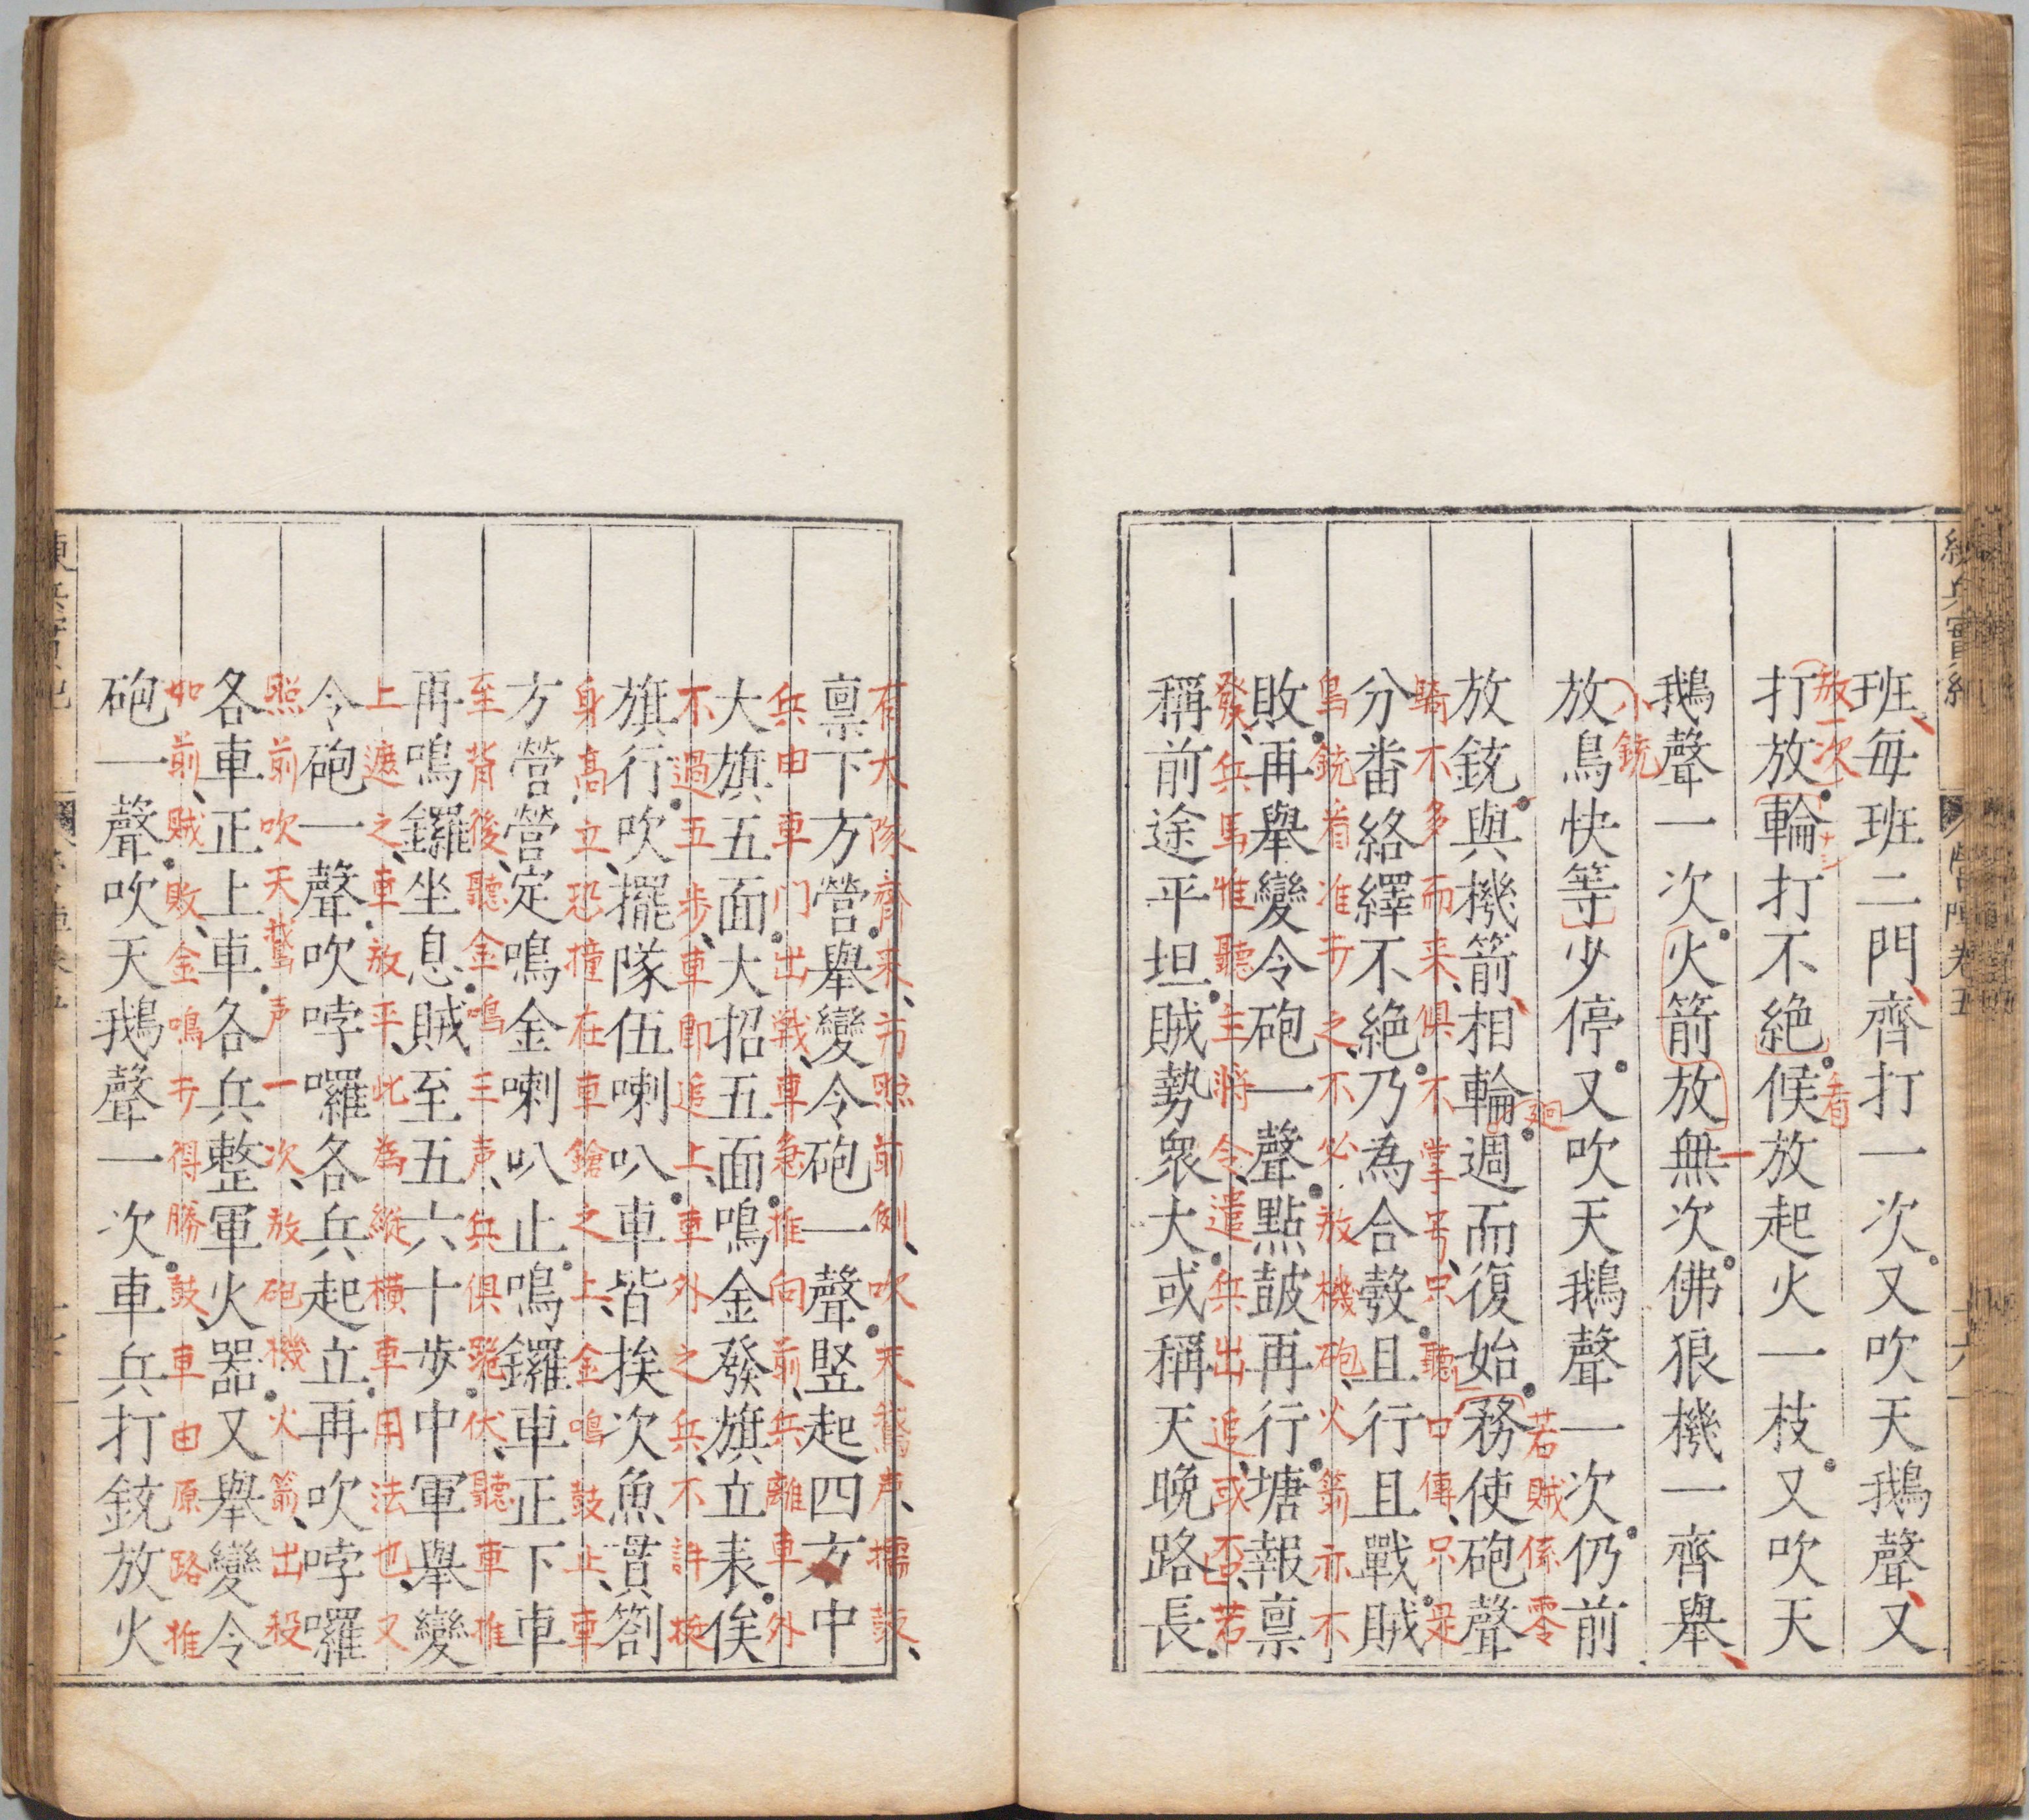 班每班二門齊打一次又吹天鵝聲又
放一次
打放輪打不絕候放起火一枝又吹天
看
鵝聲一次火箭放無次佛狼機一齊舉
銃
放鳥快等少停又吹天鵝聲一次仍前
廻
若賊係零
放銃與機箭相輪週而復始務使砲聲
騎不多而来俱不掌号只聽口傳只是
分番絡繹不絕乃為合彀且行且戰賊
鳥銃着准于之不必放機砲火箭亦不
敗再舉變令砲一聲點皷再行塘報禀
發兵馬惟聽主將令遣兵出追或否若
稱前途平坦賊勢衆大或稱天晚路長
有大隊齊来方照前例吹天鵞声擂鼓
禀下方營舉變令砲一聲竪起四方中
兵由車门出戦車急推向前兵離車外
大旗五面大招五面鳴金發旗立表俟
不過五步車即追上車外之兵不許挺
旗行吹擺隊伍喇叭車皆挨次魚貫劄
身高立恐撞在車鎗之上金鳴鼓止車
方營營定鳴金喇叭止鳴鑼車正下車
至背後聽金鳴三声兵俱跪伏聽車推
再鳴鑼坐息賊至五六十步中軍舉變
上遮之車放平此為縱橫車用法也又
令砲一聲吹哱囉各兵起立再吹哱囉
照前吹天鵞声一次放砲機火箭出殺
各車正上車各兵整軍火器又舉變令
如前賊敗金鳴于得勝鼓車由原路推
砲一聲吹天鵝聲一次車兵打銃放火